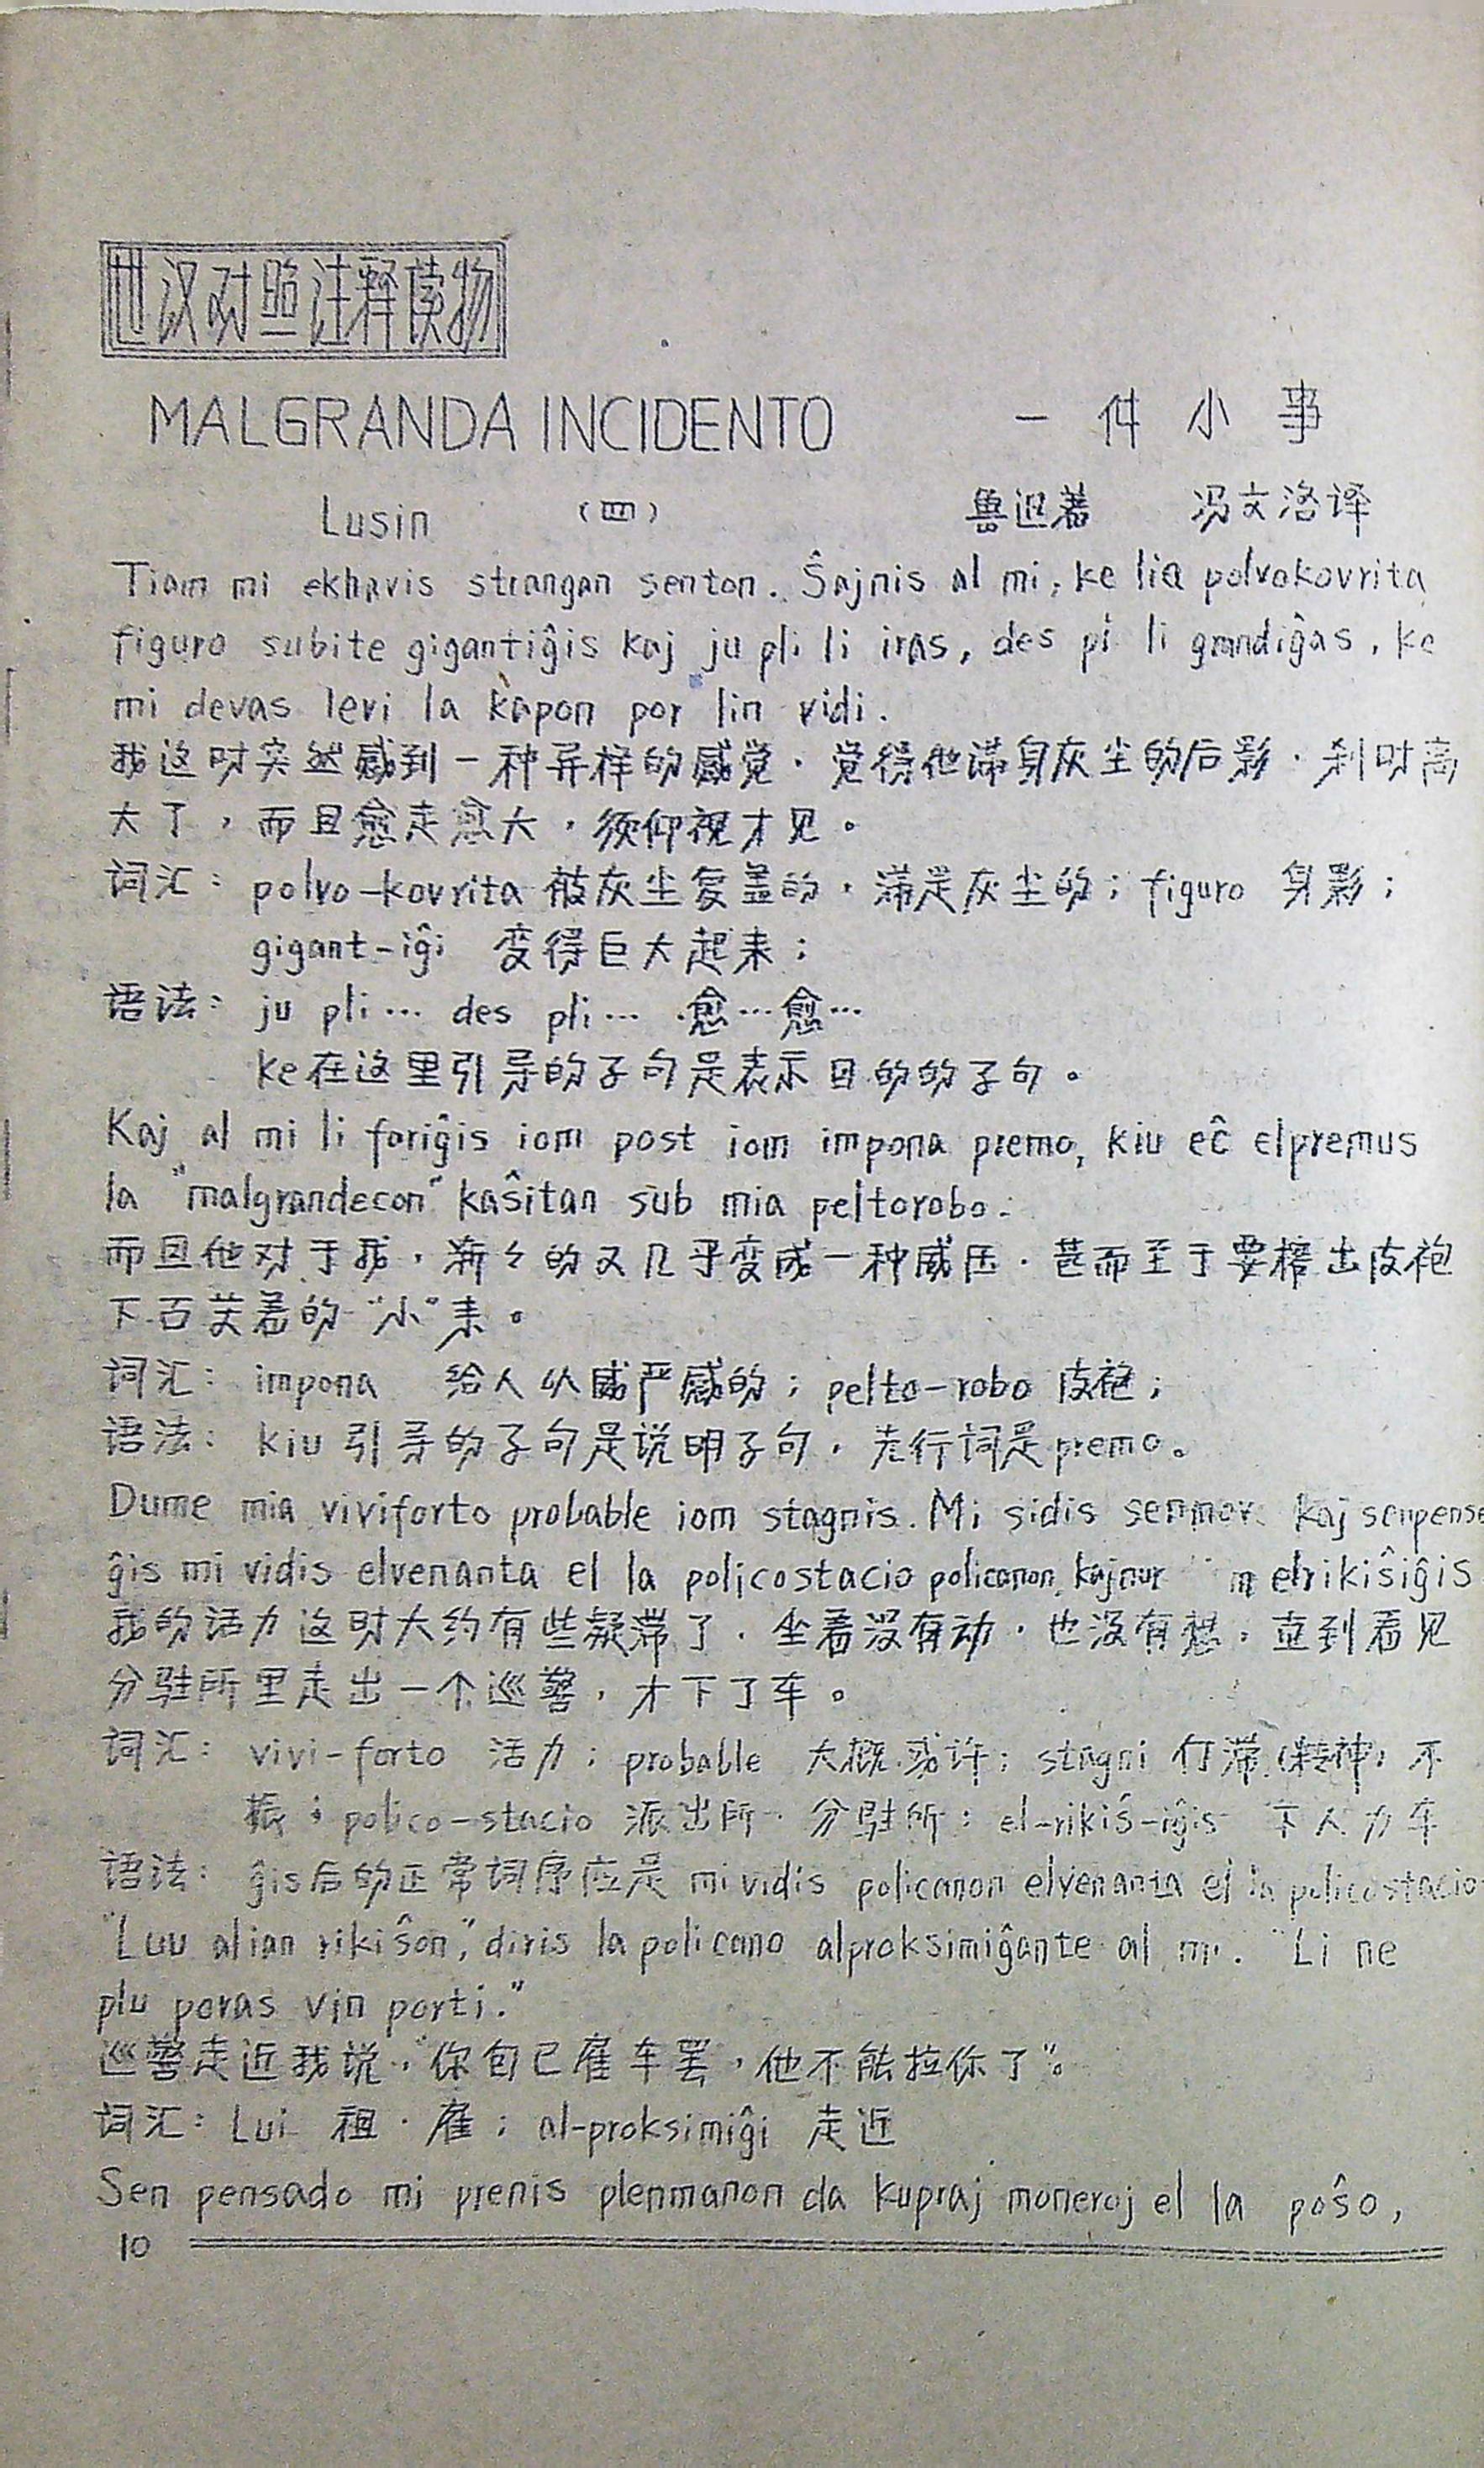 世汉对照注释读物
MALGRANDA INCIDENTO 一件小事
Lusin (四) 鲁迅著 冯文洛译
Tiam mi ekhavis strangan senton. Ŝajnis al mi, ke lia polvokovrita
figuro subite gigantiĝis kaj ju pli li iras, des pli li grandiĝas, ke
mi devas levi la kapon por lin vidi.
我这时突然感到一种异样的感觉,觉得他满身灰尘的后影,刹时高
大了,而且愈走愈大,须仰视才见。
词汇: polvo-kovrita 被灰尘复盖的,满是灰尘的; figuro 身影;
gigant-iĝi 变得巨大起来;
语法: ju pli… des pli… 愈…愈…
ke在这里引导的子句是表示目的的子句。
Kaj al mi li fariĝis iom post iom impona premo, kiu eĉ elpremus
la "malgrandecon" kaŝitan sub mia peltorobo.
而且他对于我,渐々的又几乎变成一种威压,甚而至于要榨出皮袍
下面藏着的"小"来。
词汇: impona 给人以威严感的; pelto-robo 皮袍;
语法: kiu 引导的子句是说明子句,先行词是premo。
Dume mia viviforto probable iom stagnis. Mi sidis senmov kaj senpense
ĝis mi vidis elvenanta el la policostacio policanon, kaj nur elrikiŝiĝis
我的活力这时大约有些凝滞了,坐着没有动,也没有想,直到看见
分驻所里走出一个巡警,才下了车。
词汇: vivi-forto 活力; probable 大概,或许; stagni 停滞,(精神)不
振; polico-stacio 派出所,分驻所; el-rikiŝ-iĝis 下人力车
语法: ĝis后的正常词序应是 mi vidis policanon elvenanta el la policostacio
"Luu alian rikiŝon," diris la policano alproksimiĝante al mi. "Li ne
plu povas vin porti."
巡警走近我说,"你自己雇车罢,他不能拉你了"。
词汇: Lui 租,雇; al-proksimiĝi 走近
Sen pensado mi prenis plenmanon da kupraj moneroj el la poŝo,
10